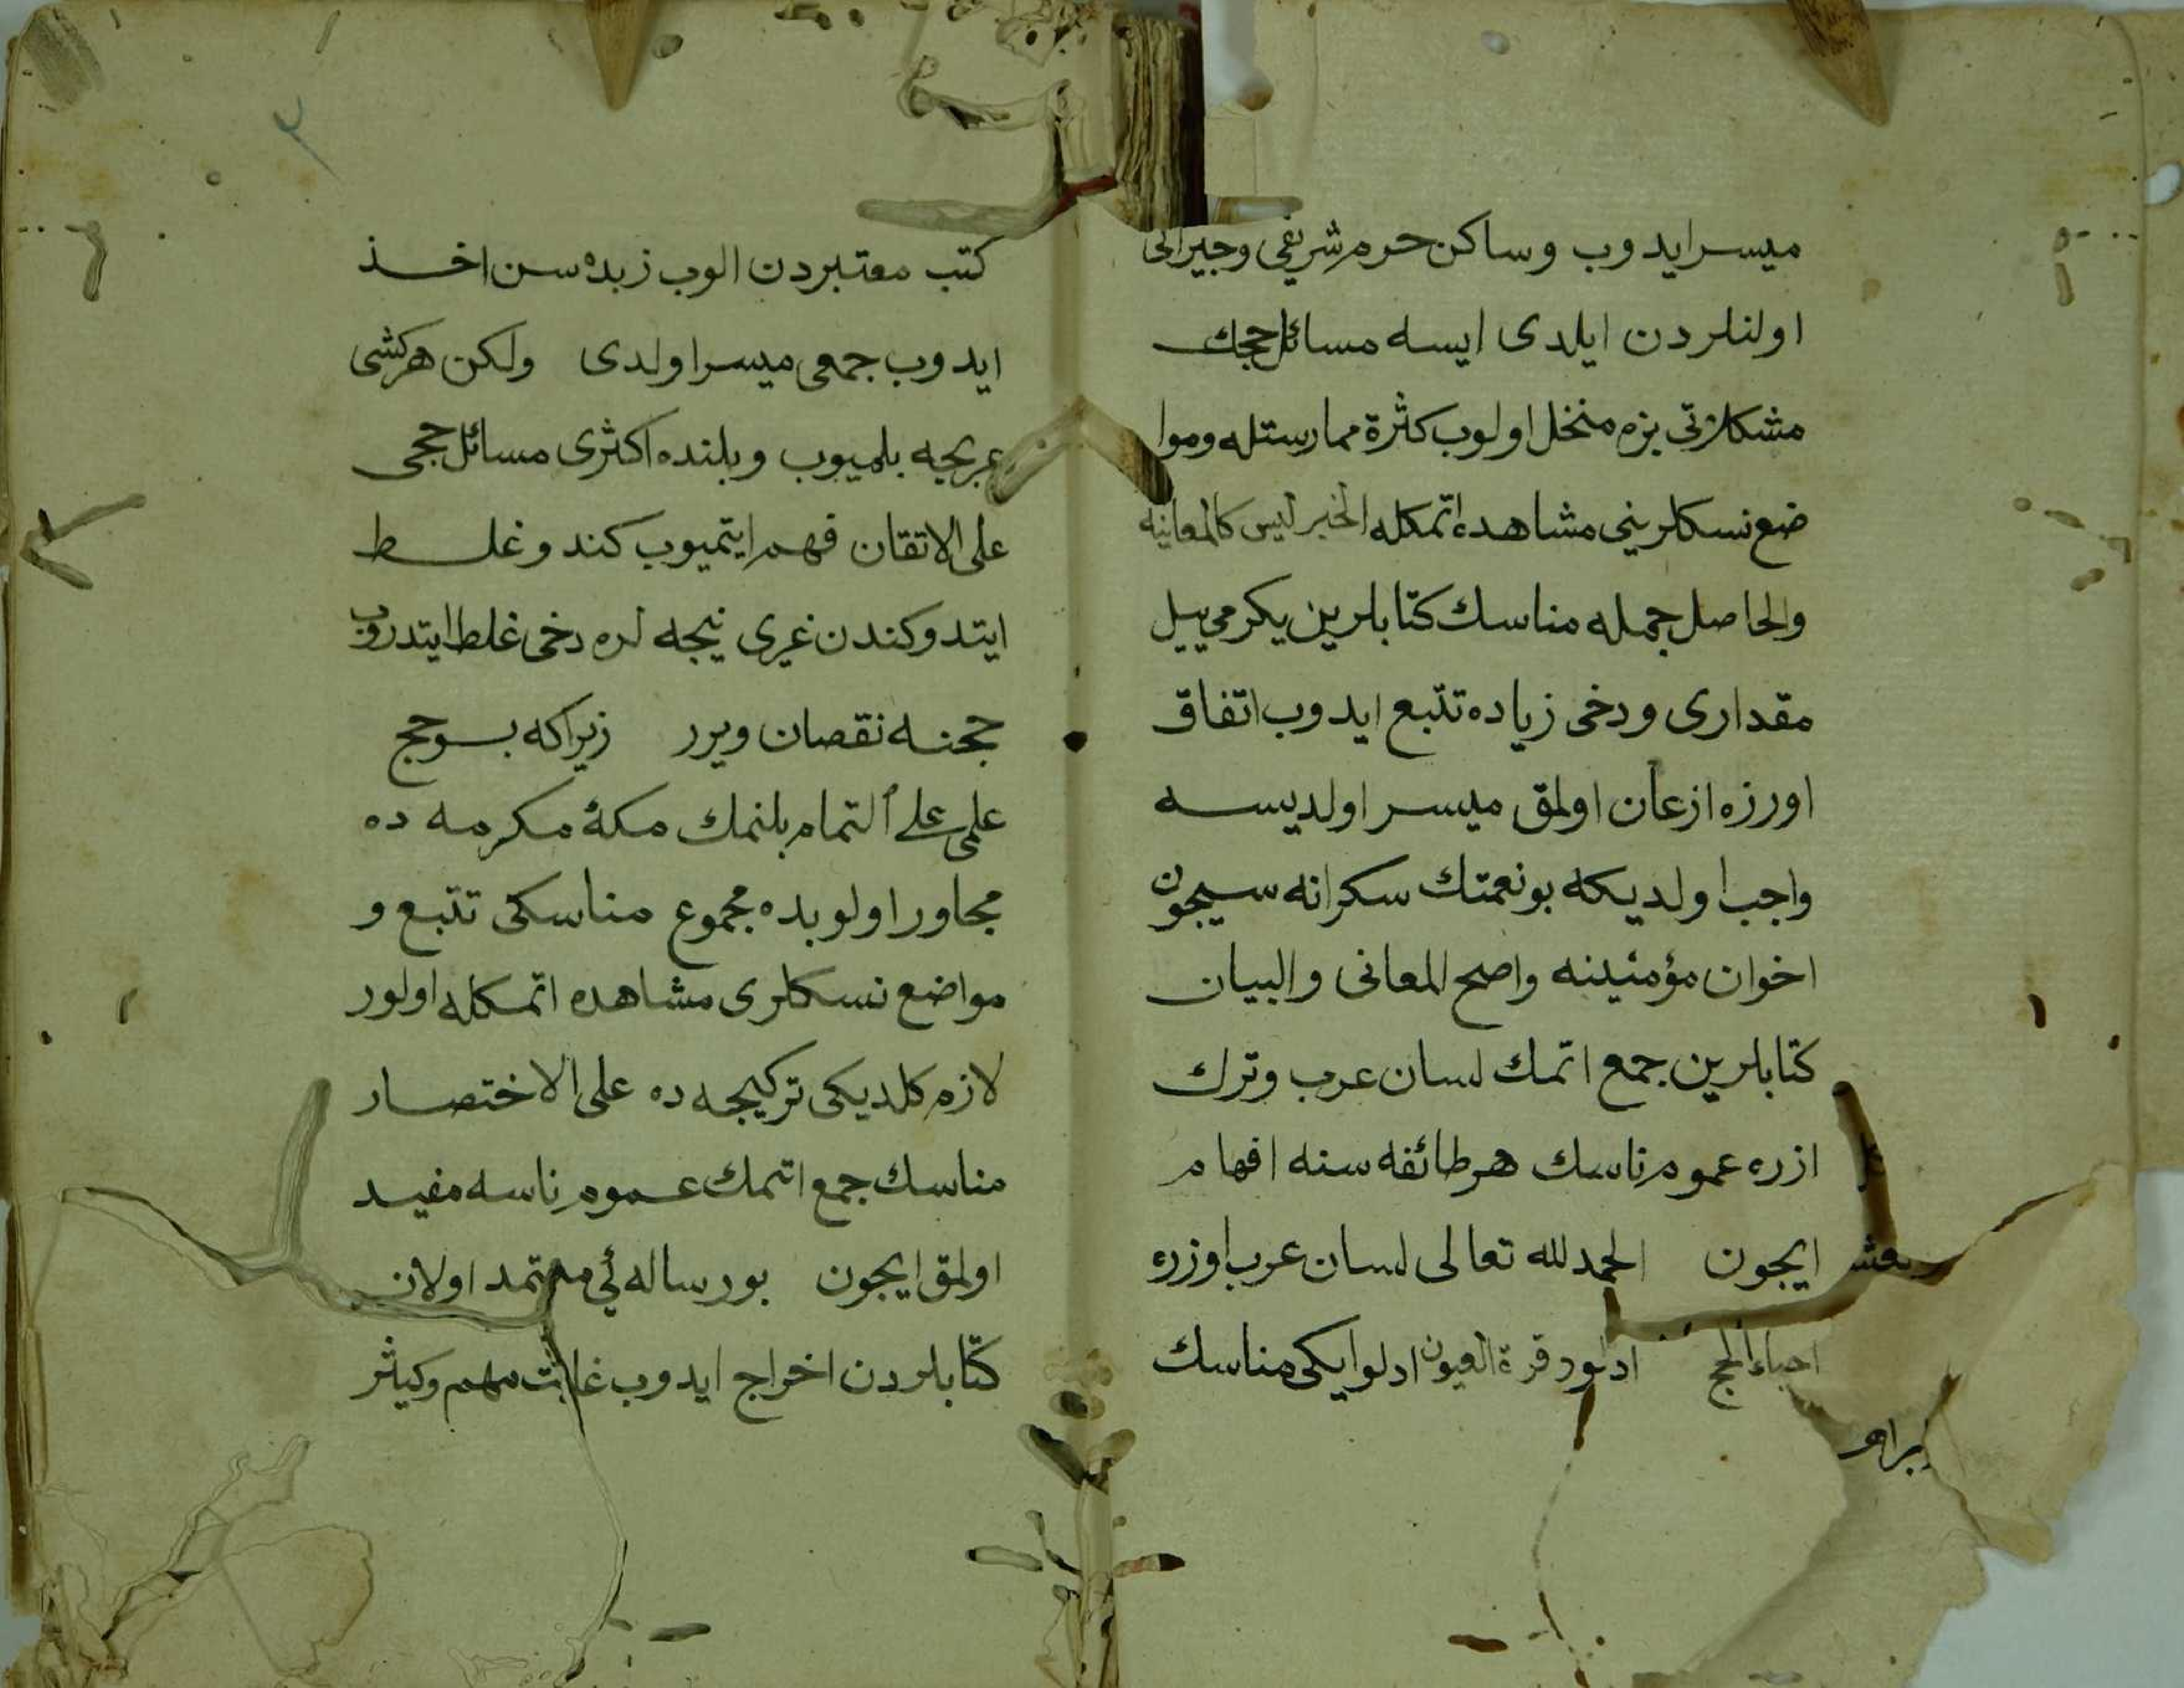 ميسر ايدوب وساكن حرم شريفى وجيرانى
اولنلردن ايلدى ايسه مسائل حجك
مشكلاتى بزه منحل اولوب كثرة ممارستله وموا
ضع نسكلرينى مشاهده اتمكله الخبر ليس كالمعاينه
والحاصل جمله مناسك كتابلرين يكرمى ييل
مقدارى ودخى زياده تتبع ايدوب اتفاق
اورزه ازعان اولمق ميسر اولديسه
واجب اولديكه بونعمتك سكرانه سيچون
اخوان مؤمنينه واضح المعانى والبيان
كتابلرين جمع اتمك لسان عرب وترك
ازره عموم ناسك هر طائفه سنه افهام
ايچون الحمد لله تعالى لسان عرب اوزره
احياء الحج ادلور قرة العيون ادلو ايكى مناسك
كتب معتبردن الوب زبده سن اخذ
ايدوب جمعى ميسر اولدى ولكن هر كشى
عربجه بلميوب وبلنده اكثرى مسائل حجى
على الاتقان فهم ايتميوب كند وغلط
ايتدوكندن غيرى نيجه لره دخى غلط ايتدروب
حجنه نقصان ويرر زيراكه بو حج
علمى على التمام بلنمك مكۀ مكرمه ده
مجاور اولوبده مجموع مناسكى تتبع و
مواضع نسكلرى مشاهده اتمكله اولور
لازم كلديكى تركيجه ده على الاختصار
مناسك جمع اتمك عموم ناسه مفيد
اولمق ايچون بورساله ئي معتمد اولان
كتابلردن اخراج ايدوب غايت مهم وكيثر